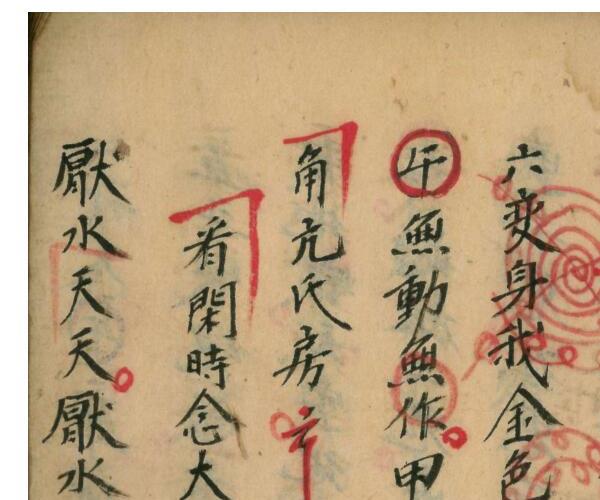 六变身我金色
午無動無作甲
角亢氏房云
看閑時念大
厭水天天厭水